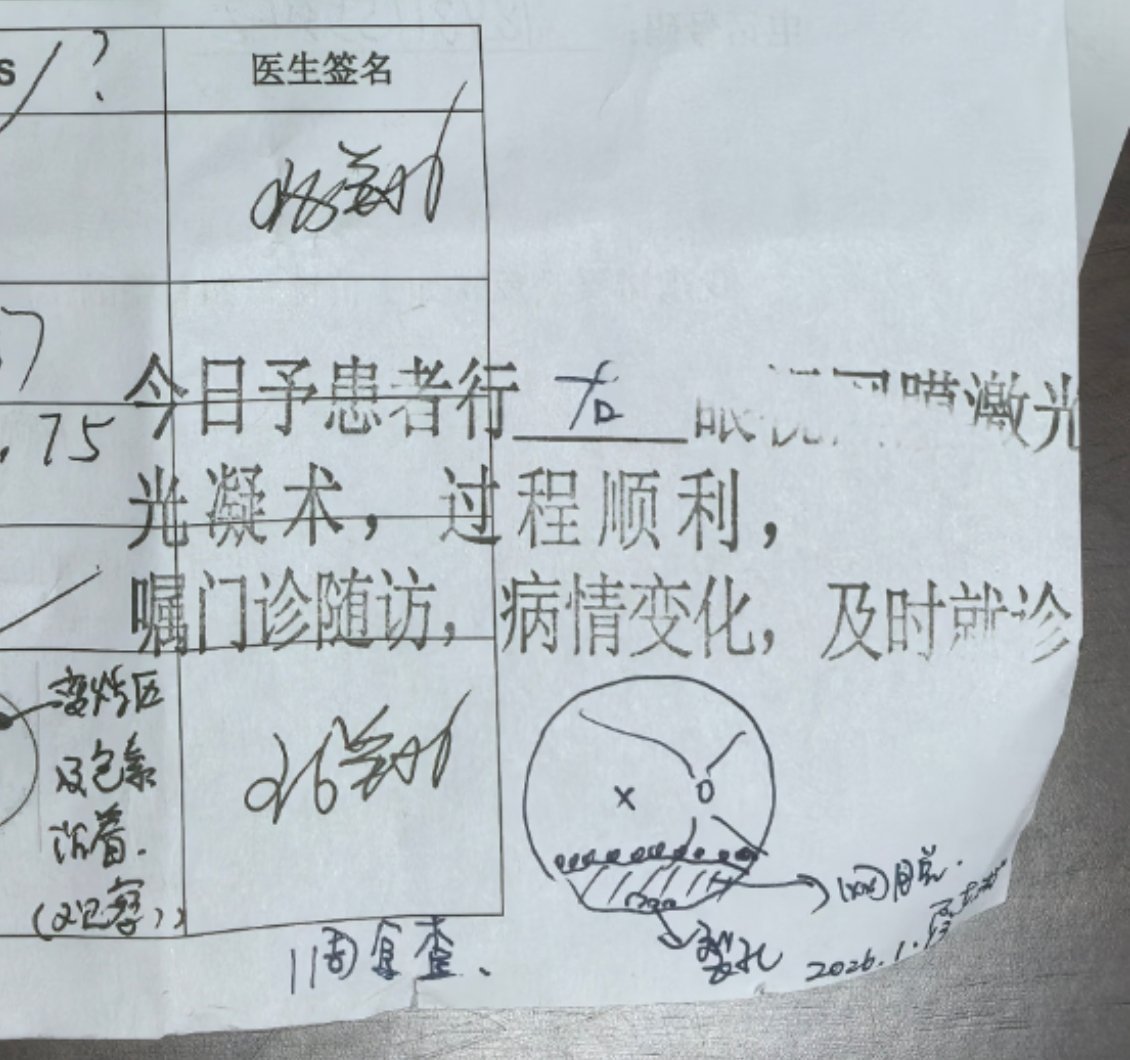 s / ?
医生签名
.75
今日予患者行 右 眼视网膜激光
光凝术，过程顺利，
嘱门诊随访，病情变化，及时就诊
变性区
及色素
沉着.
(观察)
x
网脱.
裂孔
1周复查.
2026.1.13